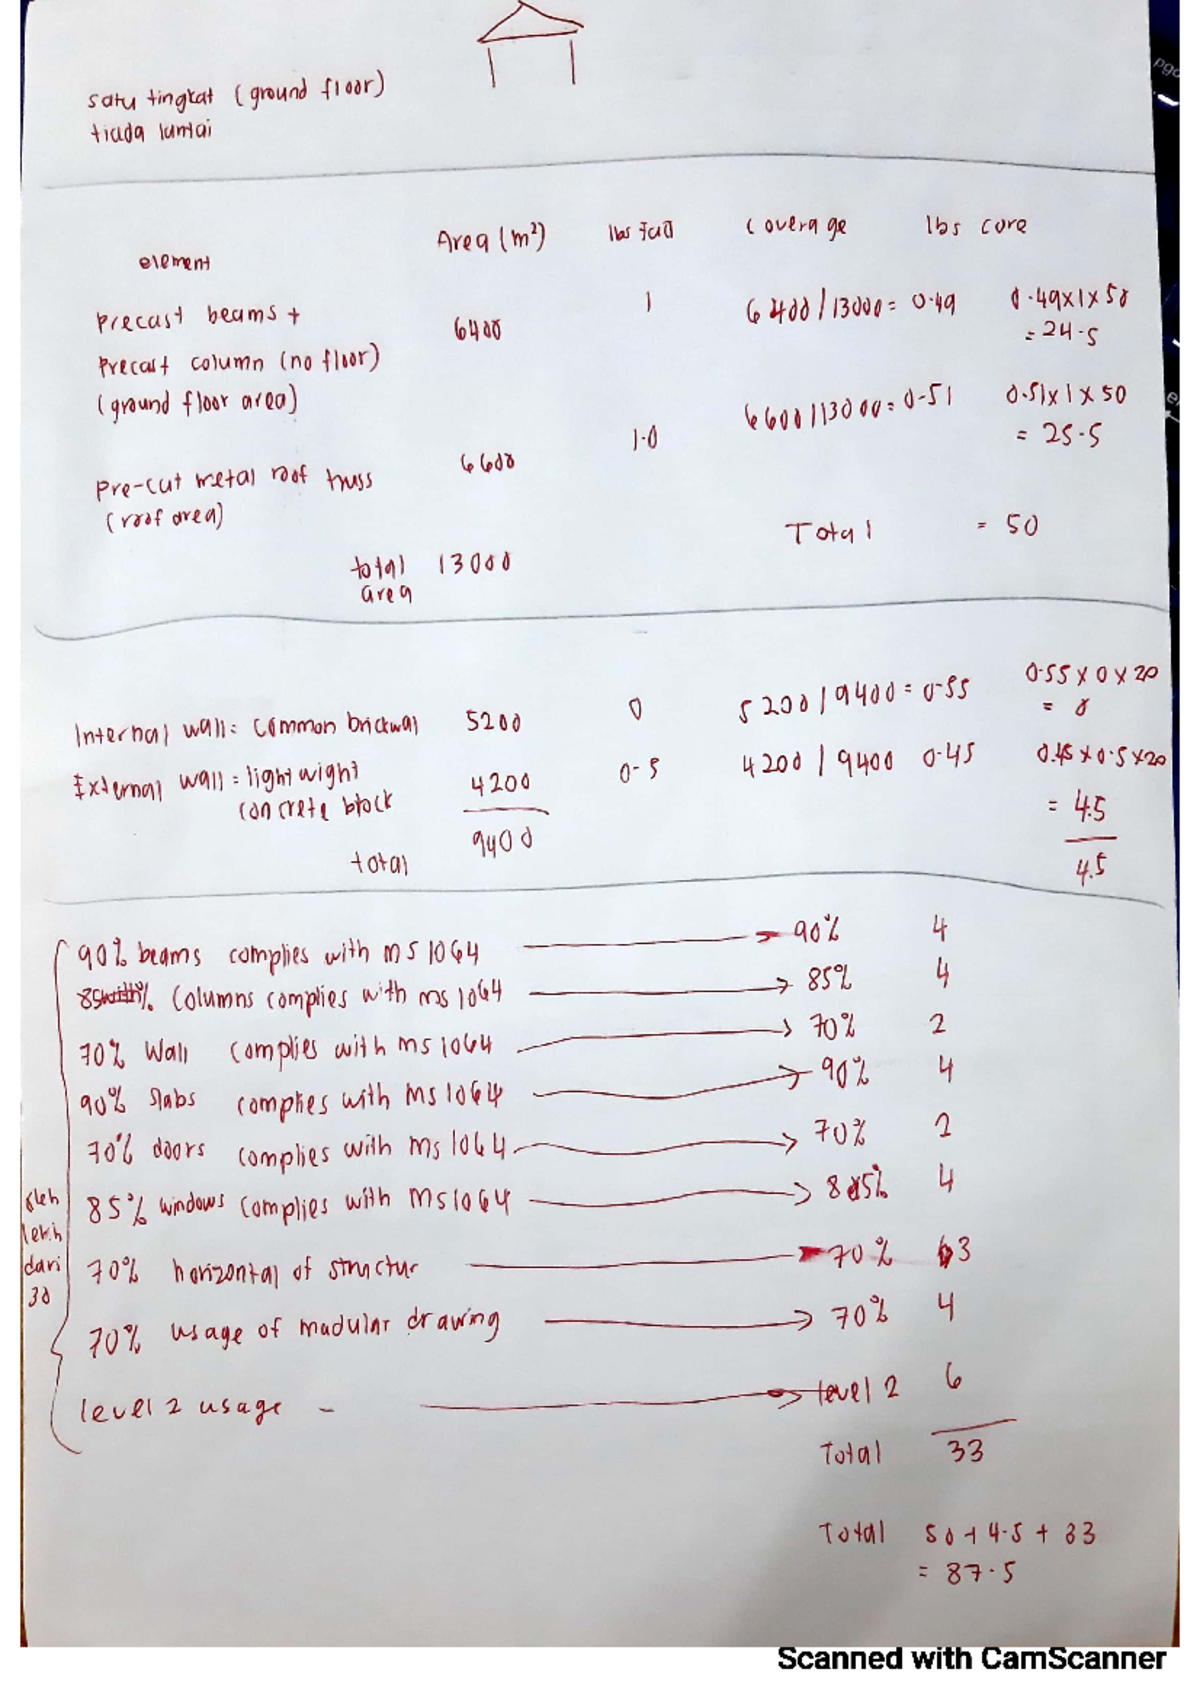 satu tingkat (ground floor)
tiada lantai
element Area (m²) Ibs Coverage Ibs core
Precast beams + 6400 1 6400/13000 = 0.49 0.49x1x50
= 24.5
Precast column (no floor)
(ground floor area)
Pre-cut metal roof truss 6600 1.0 6600/13000 = 0.51 0.51x1x50
= 25.5
(roof area)
total area 13000 Total = 50
Internal wall = common brickwal 5200 0 5200/9400 = 0.55 0.55x0x20
= 0
External wall = light wight 4200 0.5 4200/9400 0.45 0.45x0.5x20
concrete block = 4.5
total 9400 4.5
90% beams complies with MS 1064 → 90% 4
85% Columns complies with ms 1064 → 85% 4
70% Wall complies with ms 1064 → 70% 2
90% slabs complies with MS 1064 → 90% 4
70% doors complies with ms 1064 → 70% 2
85% windows complies with MS1064 → 85% 4
70% horizontal of structur → 70% 3
70% usage of modular drawing → 70% 4
level 2 usage - → level 2 6
lebih
dari
30
Total 33
Total 50 + 4.5 + 33
= 87.5
Scanned with CamScanner